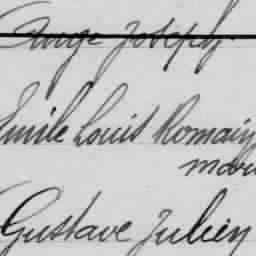 Ange Joseph
Emile Louis Romain
Gustave Julien